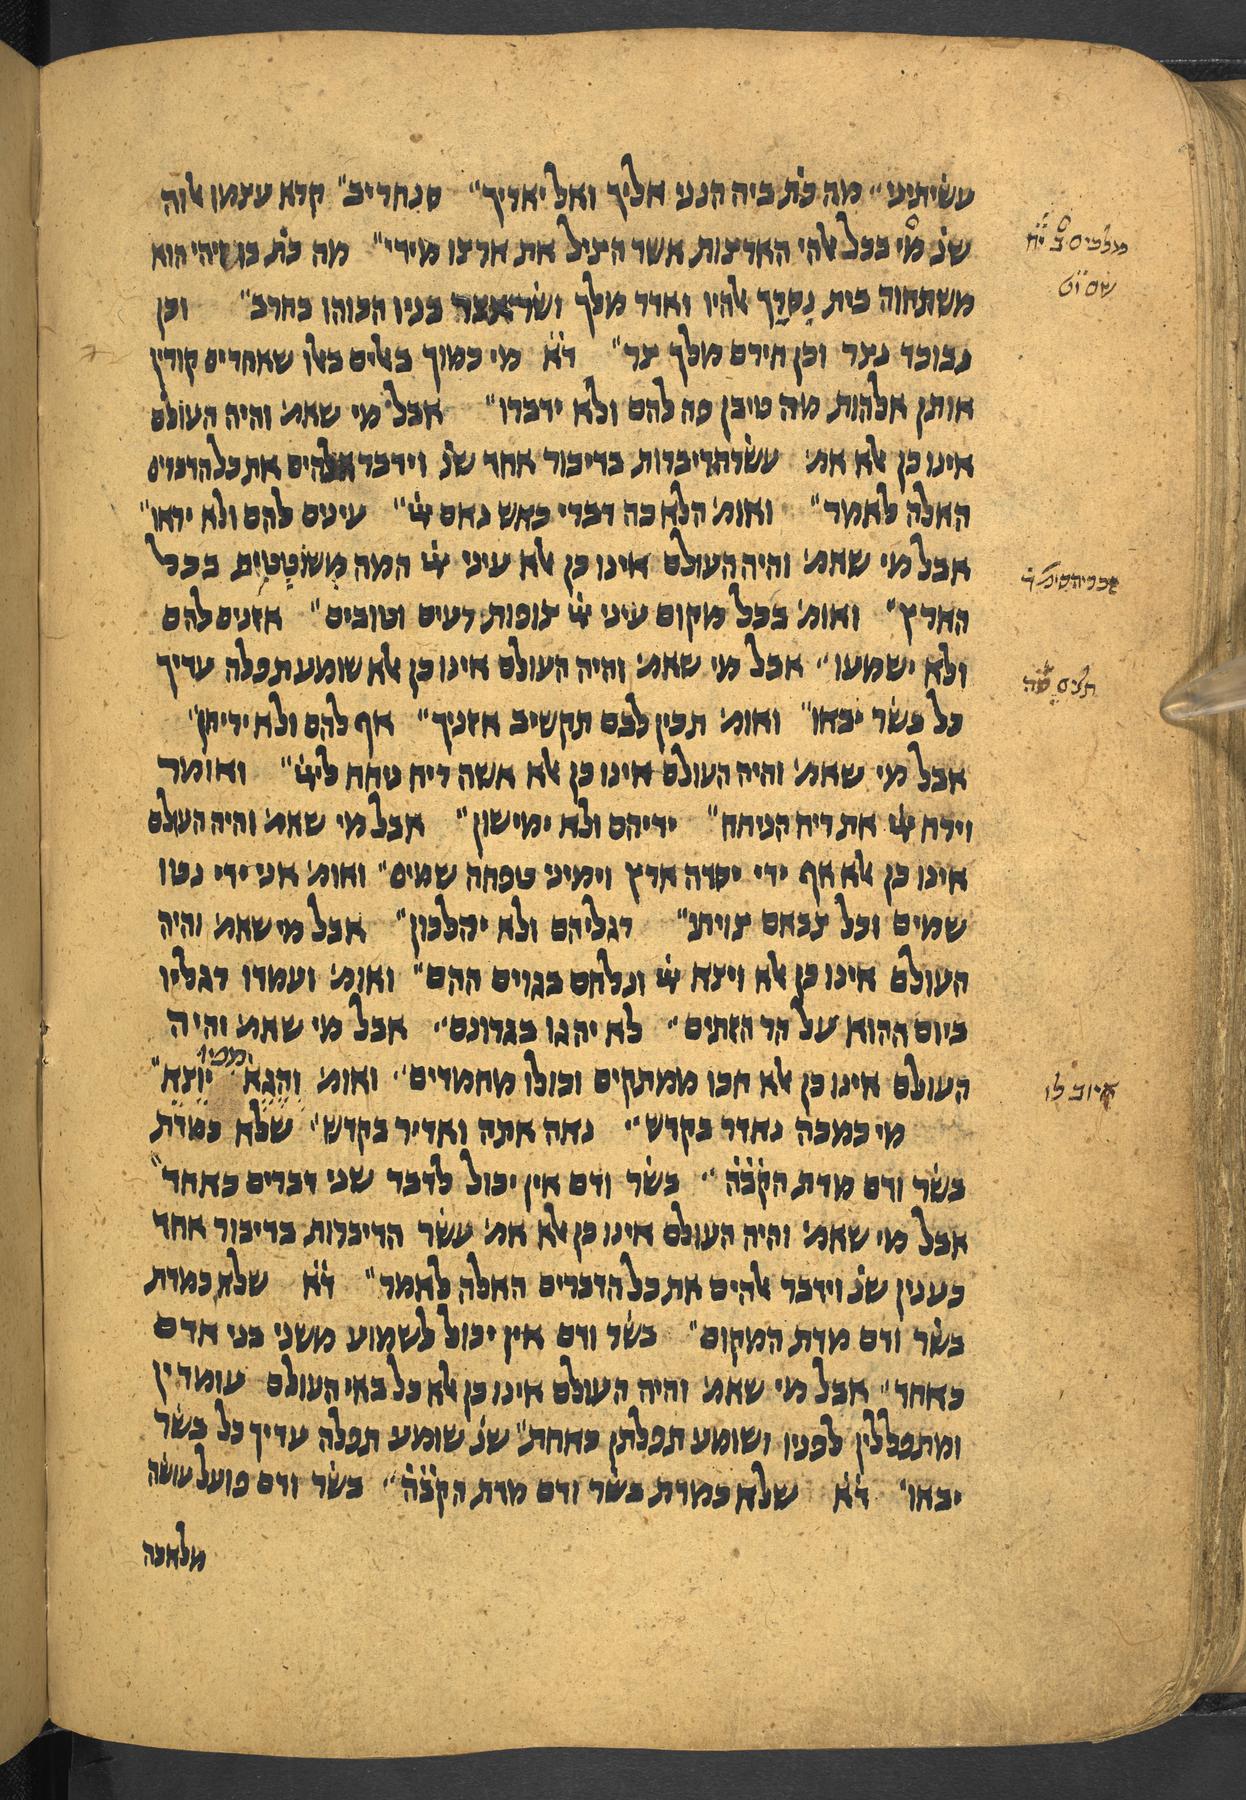 עשיתיני״ מה כת׳ ביה הנני אליך ואל יאריך״ סנחריב״ קרא עצמו אלוה
שנ׳ מי בכל אלהי הארצות אשר הציל את ארצו מידי״ מה כת׳ בו ויהי הוא
משתחוה בית נסרך אלהיו ואדר מלך ושראצר בניו הכוהו בחרב״ וכן
נבוכד נצר וכן חירם מלך צר״ ד״א מי כמוך באלים באלו שאחרים קורין
אותן אלהות מה טיבן פה להם ולא ידברו״ אבל מי שאמ׳ והיה העולם
אינו כן אלא אמ׳ עשרת דיברות בדיבור אחד שנ׳ וידבר אלהים את כל הדברים
האלה לאמר״ ואומ׳ הלא כה דברי כאש נאם ײ״ עינים להם ולא יראו״
אבל מי שאמ׳ והיה העולם אינו כן אלא עיני ײ המה משוטטים בכל
הארץ״ ואומ׳ בכל מקום עיני ײ צופות רעים וטובים״ אזנים להם
ולא ישמעו״ אבל מי שאמ׳ והיה העולם אינו כן אלא שומע תפלה עדיך
כל בשר יבאו״ ואומ׳ תכין לבם תקשיב אזניך״ אף להם ולא יריחן״
אבל מי שאמ׳ והיה העולם אינו כן אלא אשה ריח ניחח לײ״ ואומר
וירח ײ את ריח הניחח״ ידיהם ולא ימישון״ אבל מי שאמ׳ והיה העולם
אינו כן אלא אף ידי יסדה ארץ וימיני טפחה שמים״ ואומ׳ אני ידי נטו
שמים וכל צבאם צויתי״ רגליהם ולא יהלכון״ אבל מי שאמ׳ והיה
העולם אינו כן אלא ויצא ײ ונלחם בגוים ההם״ ואומ׳ ועמדו רגליו
ביום ההוא על הר הזתים״ לא יהגו בגרונם״ אבל מי שאמ׳ והיה
העולם אינו כן אלא חכו ממתקים וכולו מחמדים״ ואומ׳ והגא מפיו יוצא״
מי כמכה נאדר בקדש״ נאה אתה ואדיר בקדש״ שלא כמדת
בשר ודם מדת הקב״ה״ בשר ודם אין יכול לדבר שני דברים כאחד״
אבל מי שאמ׳ והיה העולם אינו כן אלא אמ׳ עשר הדיברות בדיבור אחד
כענין שנ׳ וידבר אלהים את כל הדברים האלה לאמר״ ד״א שלא כמדת
בשר ודם מדת המקום״ בשר ודם אין יכול לשמוע משני בני אדם
כאחד״ אבל מי שאמ׳ והיה העולם אינו כן אלא כל באי העולם עומדין
ומתפללין לפניו ושומע תפלתן כאחת״ שנ׳ שומע תפלה עדיך כל בשר
יבאו״ ד״א שלא כמדת בשר ודם מדת הקב״ה״ בשר ודם פועל עושה
מלאכה
מלכים ב י״ח
שם י״ט
זכריה סימ׳ ד
תלים ס״ה
איוב לז